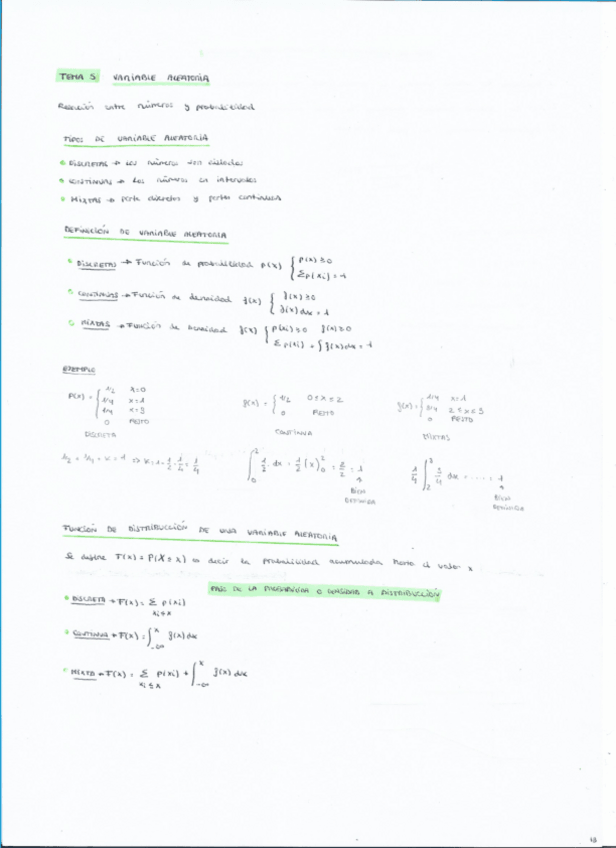 TEMA 5 VARIABLE ALEATORIA
Relación entre números y probabilidad
TIPOS DE VARIABLE ALEATORIA
DISCRETAS → Los números son aislados
CONTINUAS → Los números en intervalos
MIXTAS → parte discretas y partes continuas
DEFINICIÓN DE VARIABLE ALEATORIA
DISCRETAS → Función de probabilidad p(x) { p(x) ≥ 0
Σp(xi) = 1
CONTINUAS → Función de densidad f(x) { f(x) ≥ 0
f(x) dx = 1
MIXTAS → Función de densidad f(x) { p(xi) ≥ 0 f(x) ≥ 0
Σ p(xi) + ∫ f(x) dx = 1
EJEMPLO
P(x) = { 1/2 x=0
1/4 x=1
x=3
0 RESTO
DISCRETA
f(x) = { 1/2 0 ≤ x ≤ 2
0 RESTO
CONTINUA
f(x) = { 1/4 x=1
3/4 2 ≤ x ≤ 3
0 RESTO
MIXTAS
1/2 + 1/4 + K = 1 ⇒ K = 1 - 1/2 - 1/4 = 1/4
∫₀² 1/2 dx = 1/2 (x)₀² = 2/2 = 1
BIEN
DEFINIDA
1/4 ∫₂³ 3/4 dx = ..... = 1
BIEN
DEFINIDA
FUNCIÓN DE DISTRIBUCCIÓN DE UNA VARIABLE ALEATORIA
Se define F(x) = P(X ≤ x) es decir la probabilidad acumulada hasta el valor x
DE LA A DISTRIBUCCIÓN
DISCRETA → F(x) = Σ p(xi)
xi ≤ x
CONTINUA → F(x) = ∫₋∞ˣ f(x) dx
MIXTO → F(x) = Σ p(xi) + ∫₋∞ˣ f(x) dx
xi ≤ x